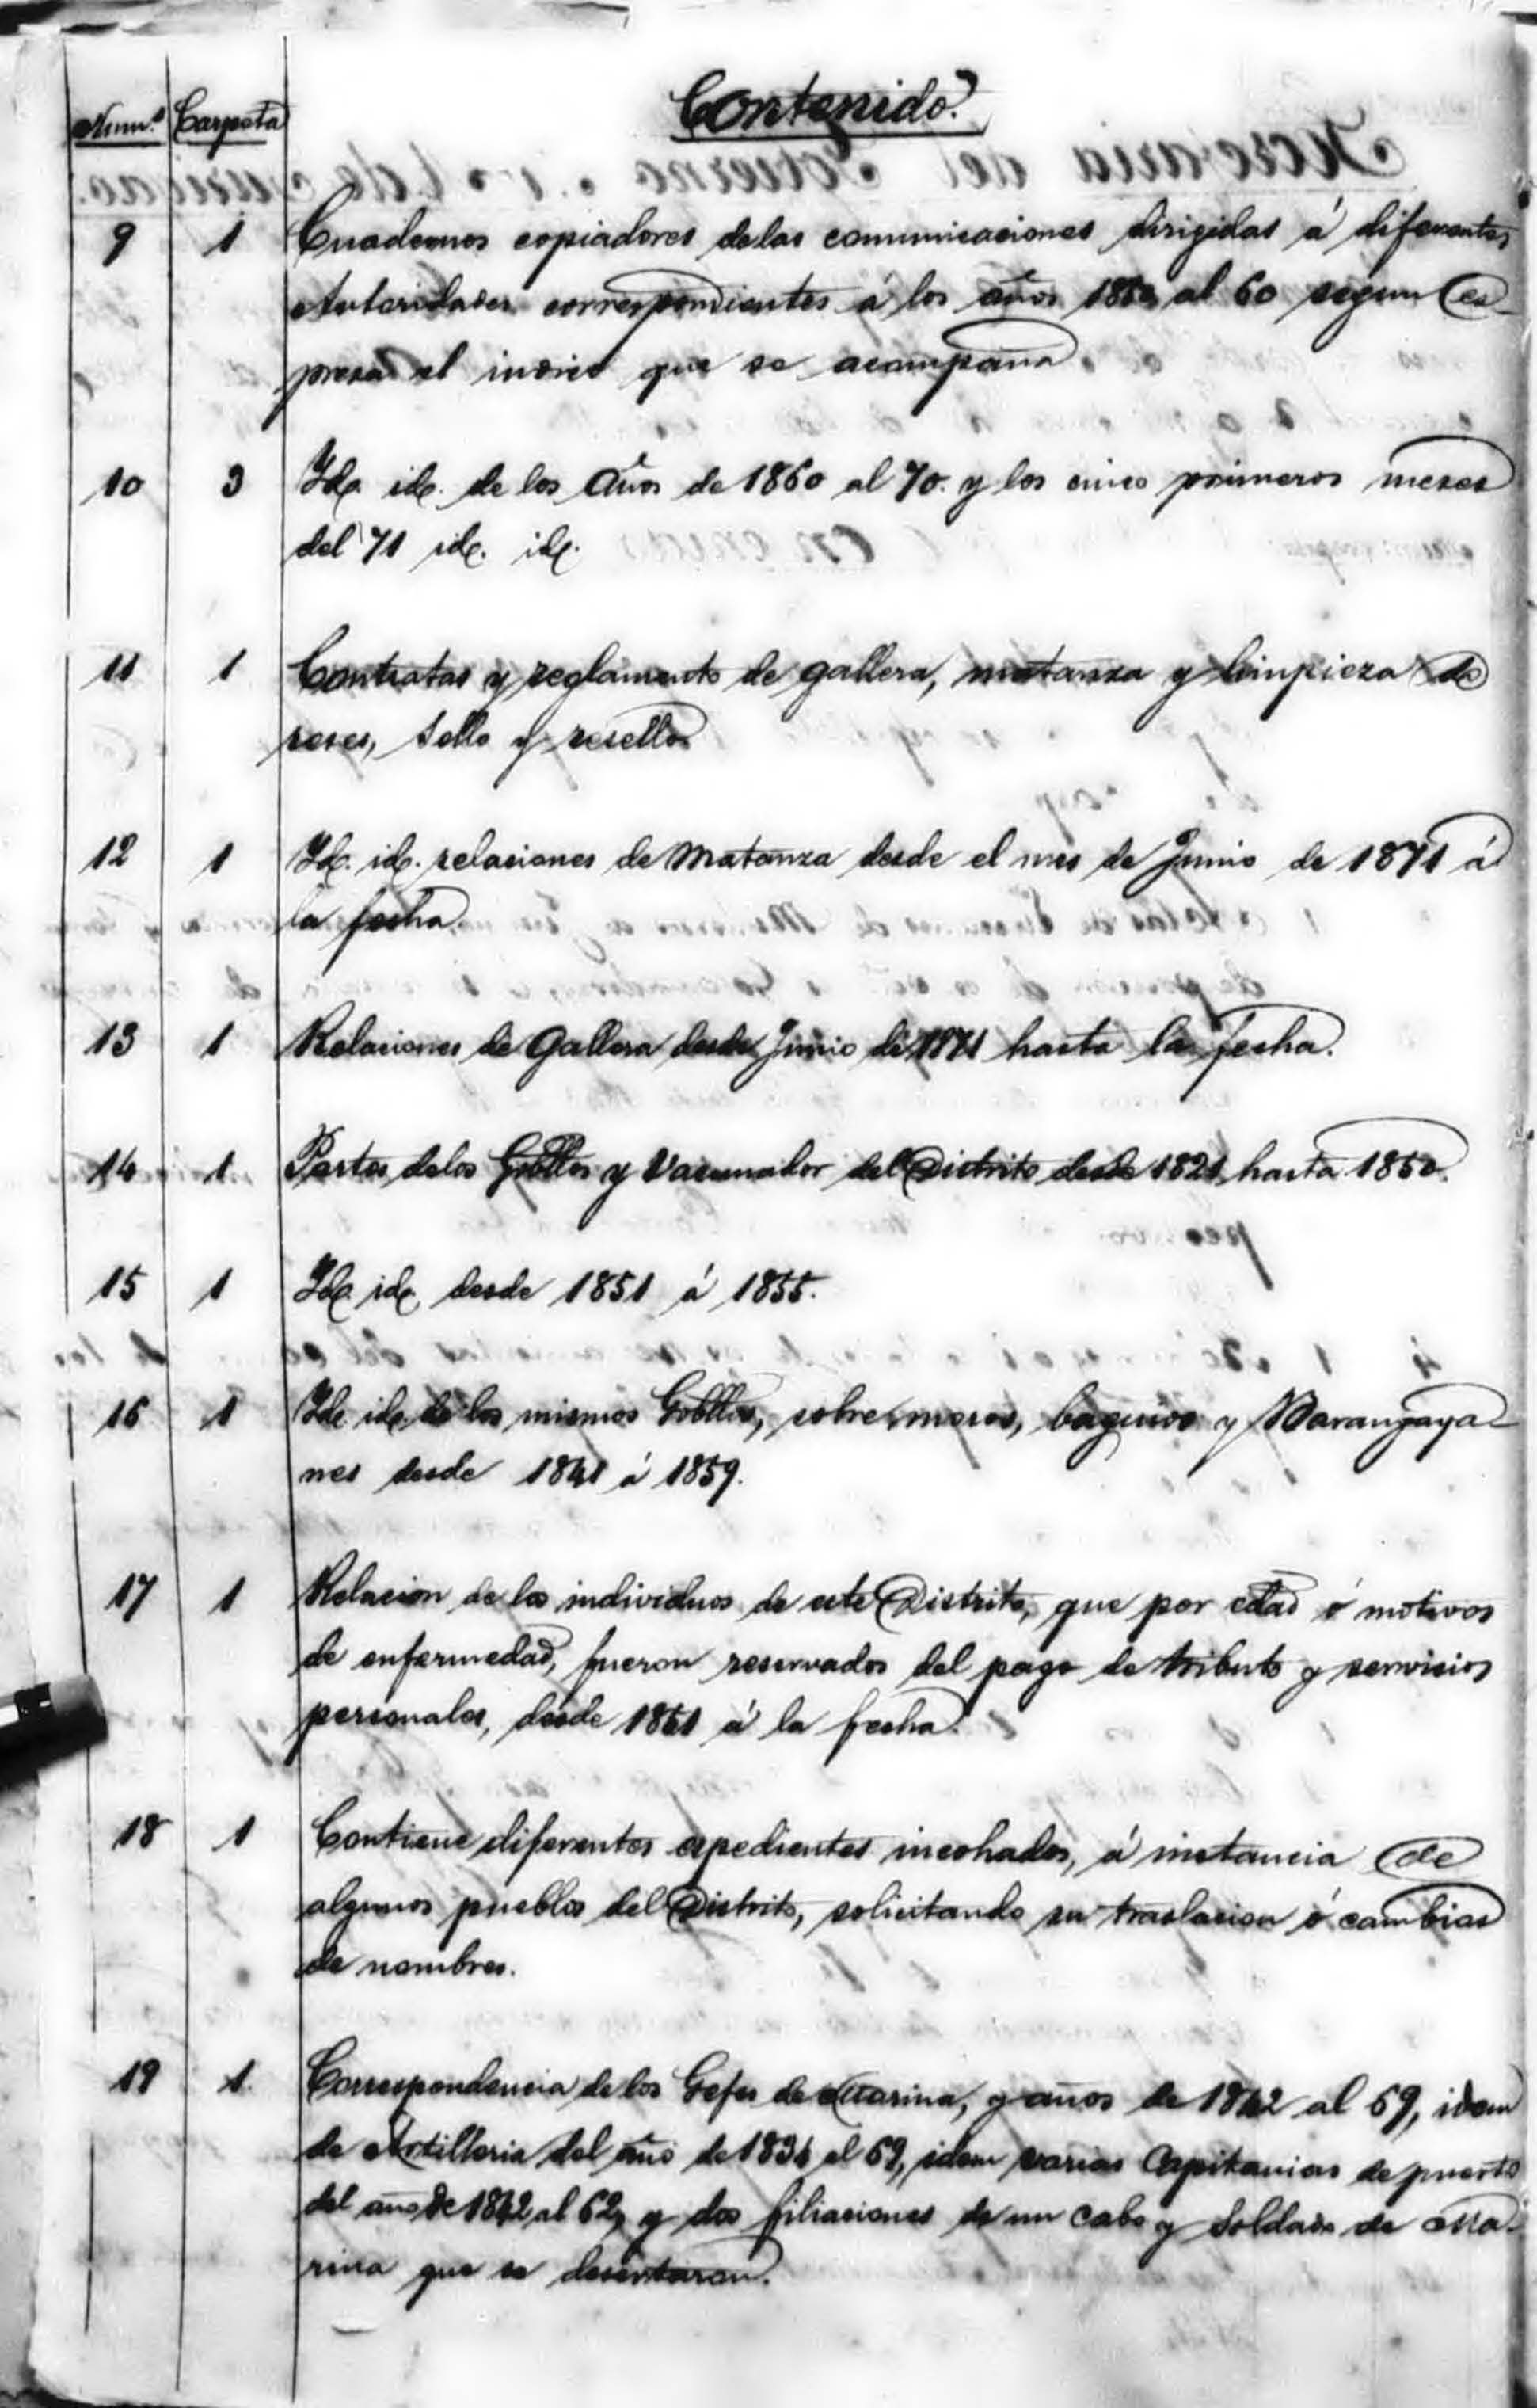 Num.º Carpeta Contenido.
9 1 Cuadernos copiadores delas comunicaciones dirigidas á diferentes
Autoridades correspondientes á los años 18 al 60 segun es-
presa el indice que se acompaña
10 3 Id. id. de los años de 1860 al 70. y los cinco primeros meses
del 71 id. id.
11 1 Contratas y reglamento de gallera, matanza y limpieza de
reses, sello y resello
12 1 Id. id. relaciones de Matanza desde el mes de Junio de 1871 á
la fecha.
13 1 Relaciones de Gallera desde Junio de 1871 hasta la fecha.
14 1 Partes delos Gobllos y Vacunador del Distrito desde 1821 hasta 1850.
15 1 Id. id. desde 1851 á 1855.
16 1 Id. id. de los mismos Gobllos, sobre moros, baguios y Barangaya-
nes desde 1841 á 1859.
17 1 Relacion de los individuos de este Distrito, que por edad ó motivos
de enfermedad, fueron reservados del pago de tributo y servicios
personales, desde á la fecha.
18 1 Contiene diferentes espedientes incohados, á instancia de
algunos pueblos del Distrito, solicitando su traslacion ó cambios
de nombres.
19 1. Correspondencia de los Gefes de Marina, y años de 1842 al 69, idem
de Artilleria del año de al 69, idem varias Capitanias de puerto
del año de 1842 al 62, y dos filiaciones de un Cabo y Soldado de Ma-
rina que se desertaron.